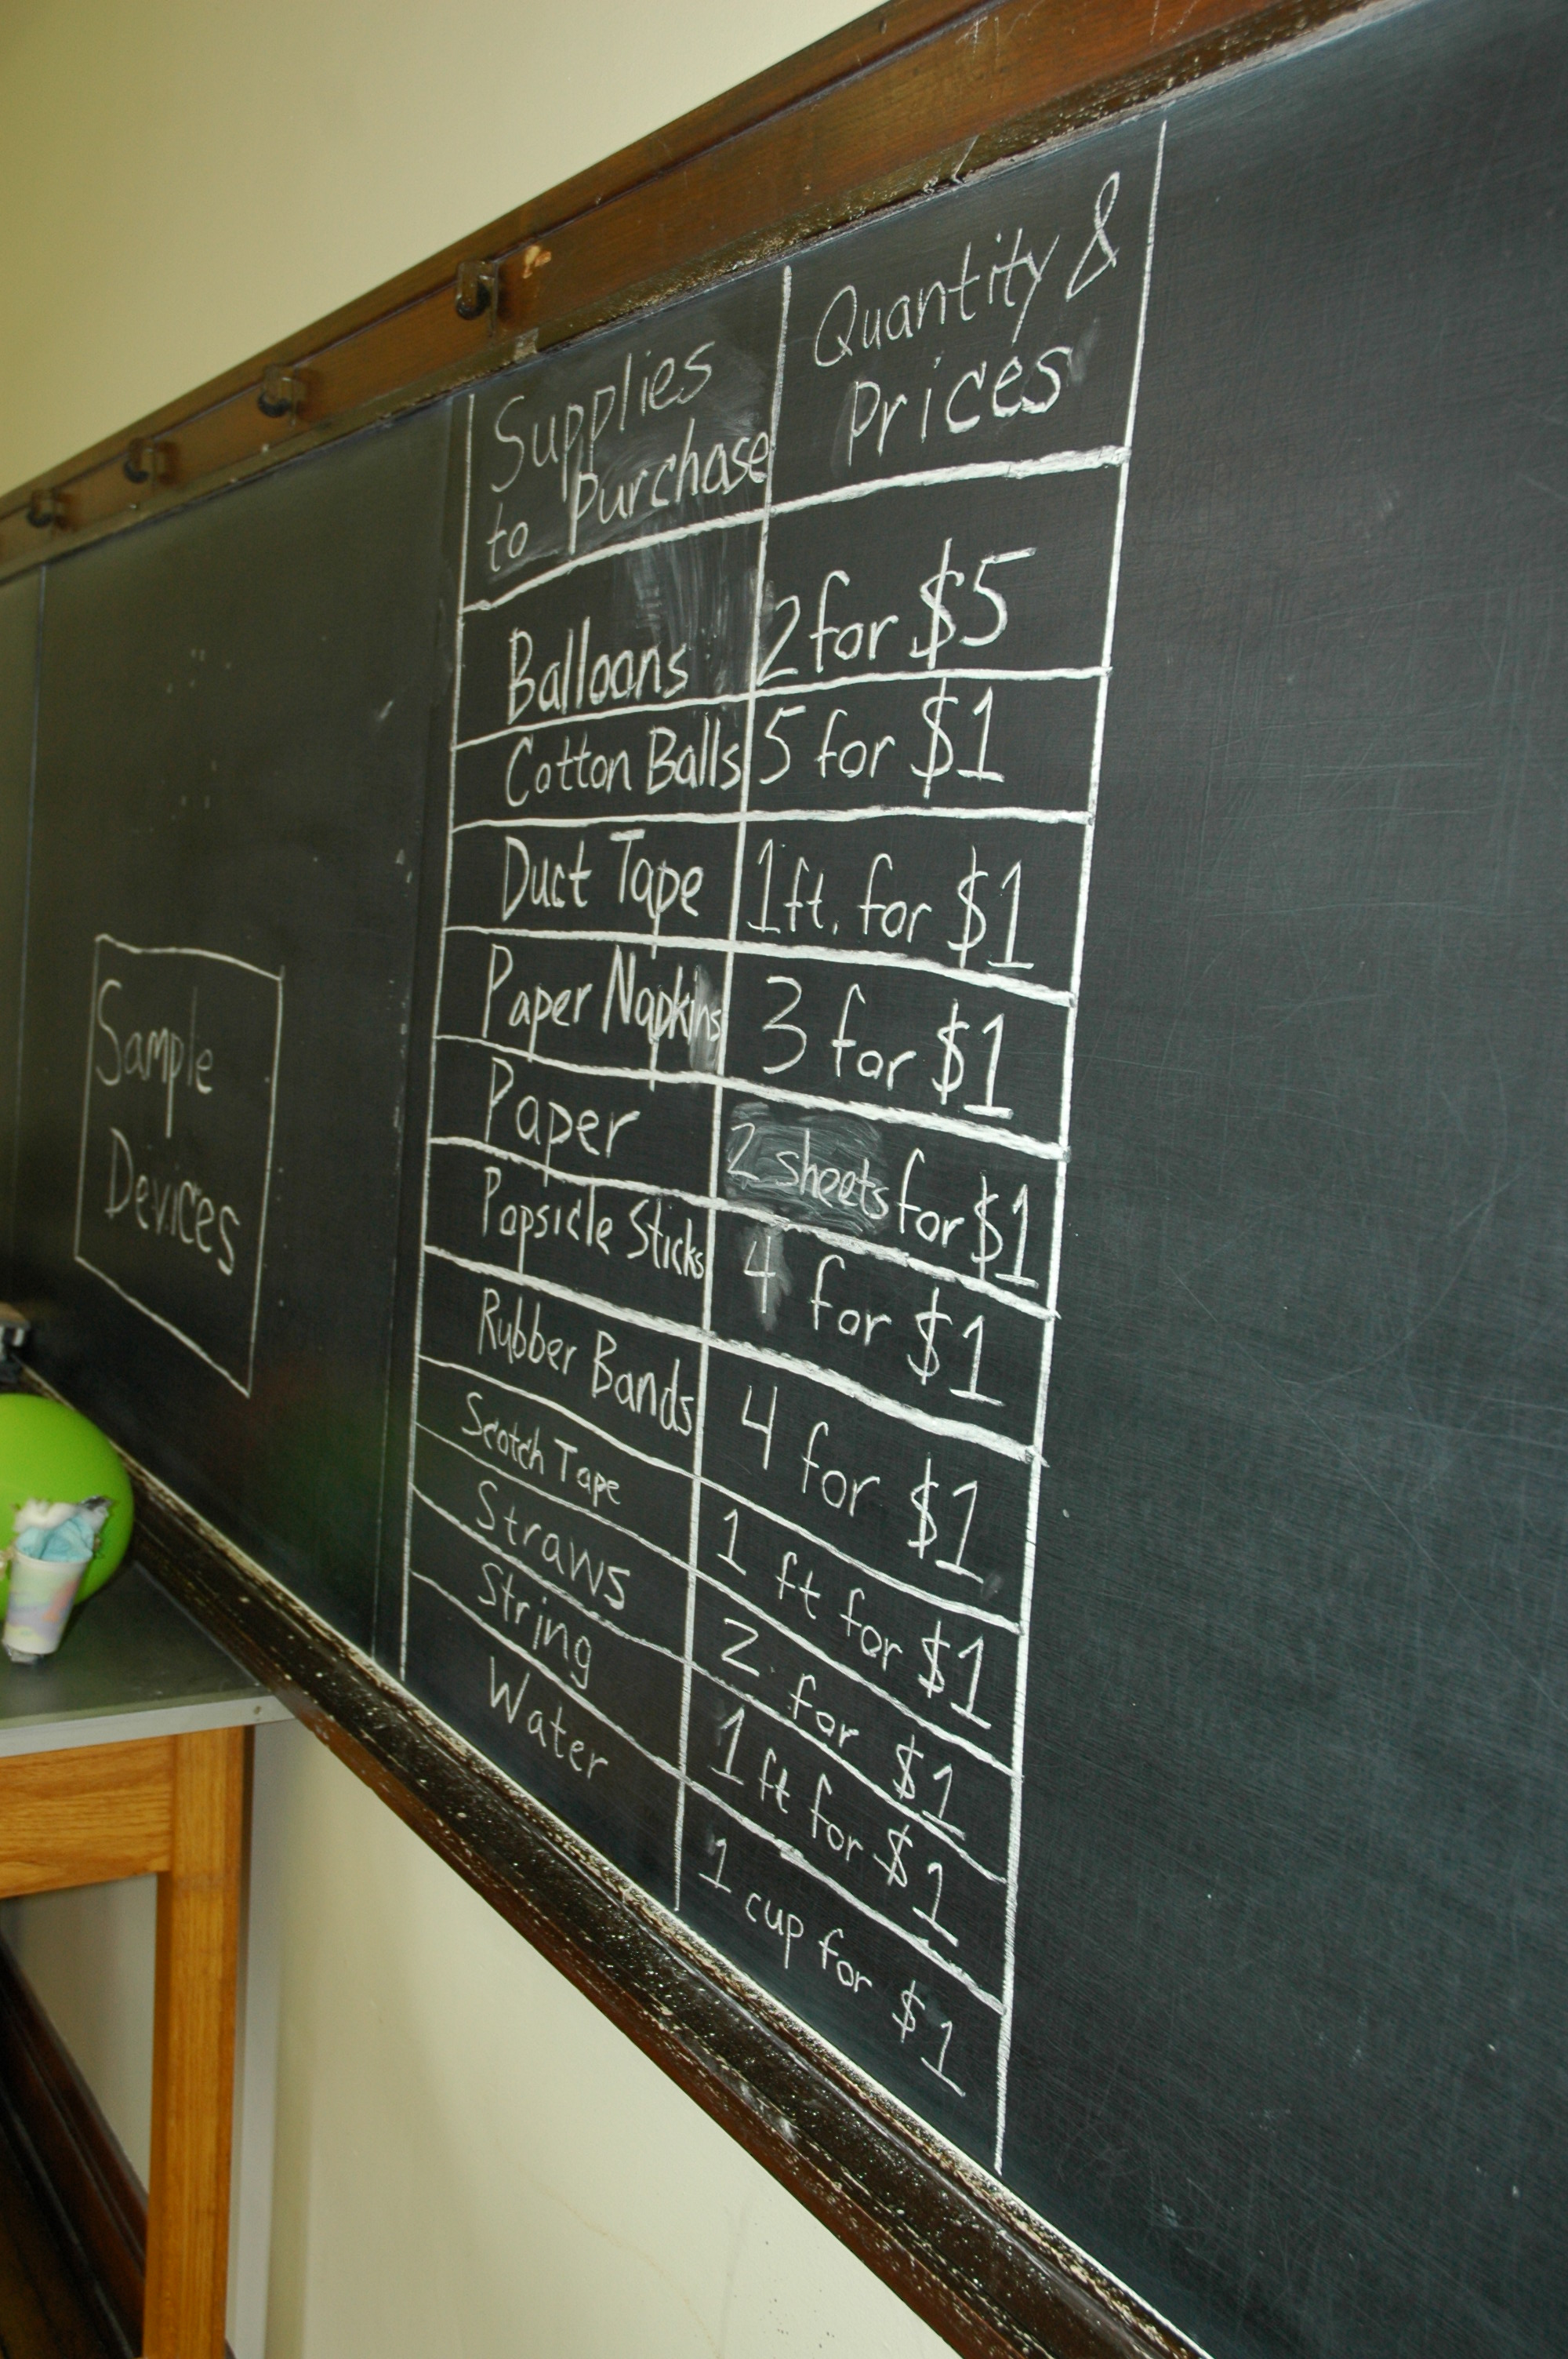 Supplies
to Purchase
Quantity &
Prices
Balloons 2 for $5
Cotton Balls 5 for $1
Duct Tape 1 ft. for $1
Paper Napkins 3 for $1
Paper 2 sheets for $1
Popsicle Sticks 4 for $1
Rubber Bands 4 for $1
Scotch Tape 1 ft for $1
Straws 2 for $1
String 1 ft for $1
Water 1 cup for $1
Sample
Devices